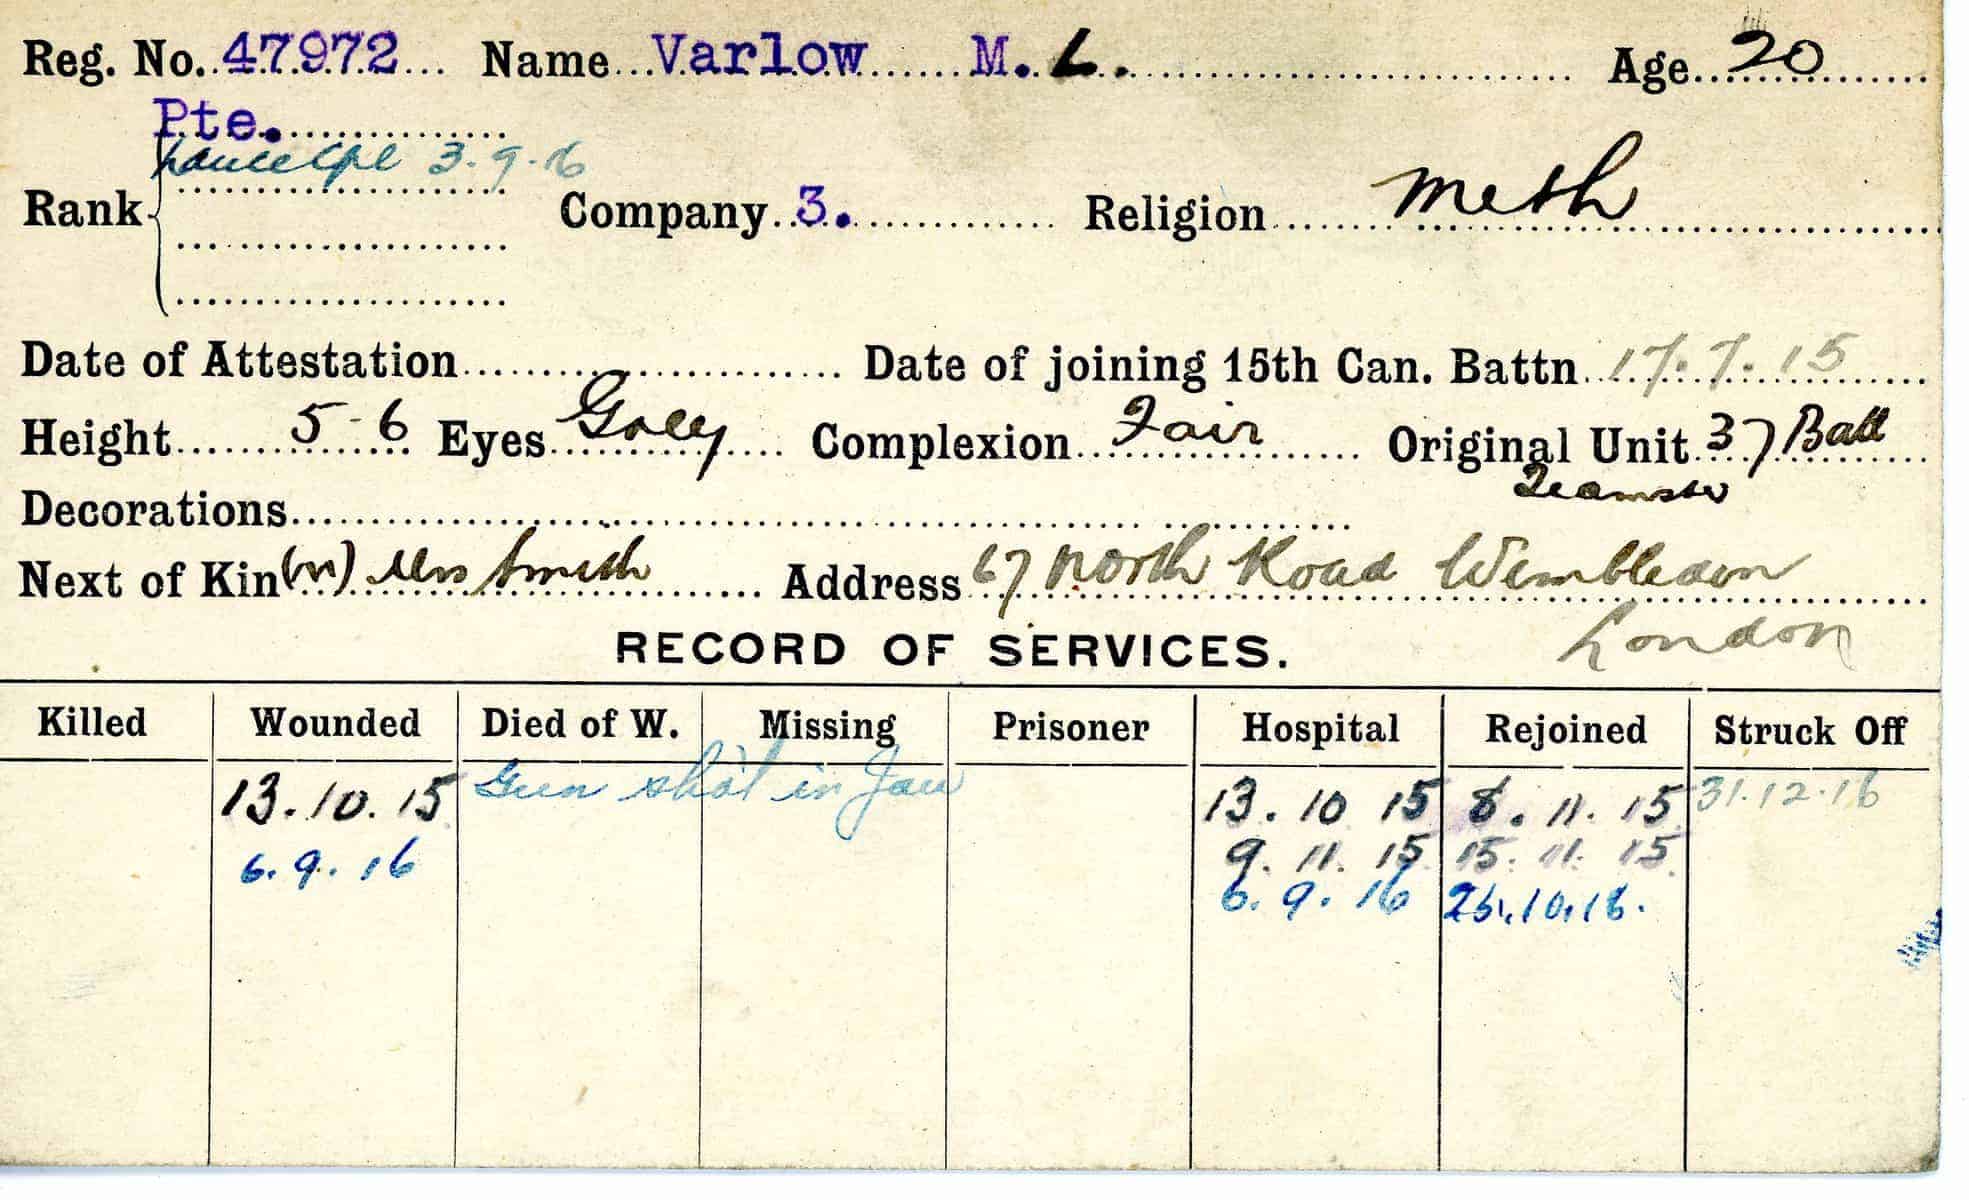 Reg. No. 47972 Name Varlow M. L. Age 20
Pte.
Lance Cpl 3.9.16
Rank Company 3. Religion Meth
Date of Attestation Date of joining 15th Can. Battn 17.7.15
Height 5-6 Eyes Grey Complexion Fair Original Unit 37 Batt
Teamster
Decorations
Next of Kin (m) Mrs Smith Address 67 North Road Wimbledon
London
RECORD OF SERVICES.
Killed Wounded Died of W. Missing Prisoner Hospital Rejoined Struck Off
13.10.15 Gun shot in Jaw 13.10 15 8.11.15 31.12.16
9.11.15 15.11.15
6.9.16 6.9.16 26.10.16.